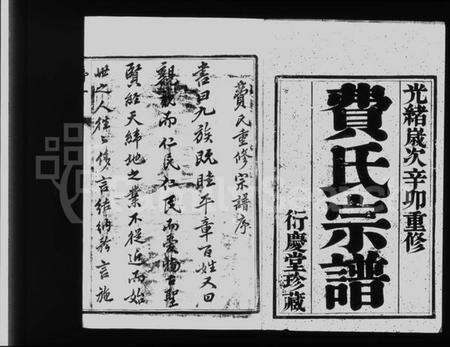 光緒歲次辛卯重修
費氏宗譜
衍慶堂珍藏
費氏重修宗譜序
書曰九族既睦平章百姓又曰
親親而仁民仁民而愛物古聖
賢經天緯地之業不從近而始
世之人往往侈言結納務言施